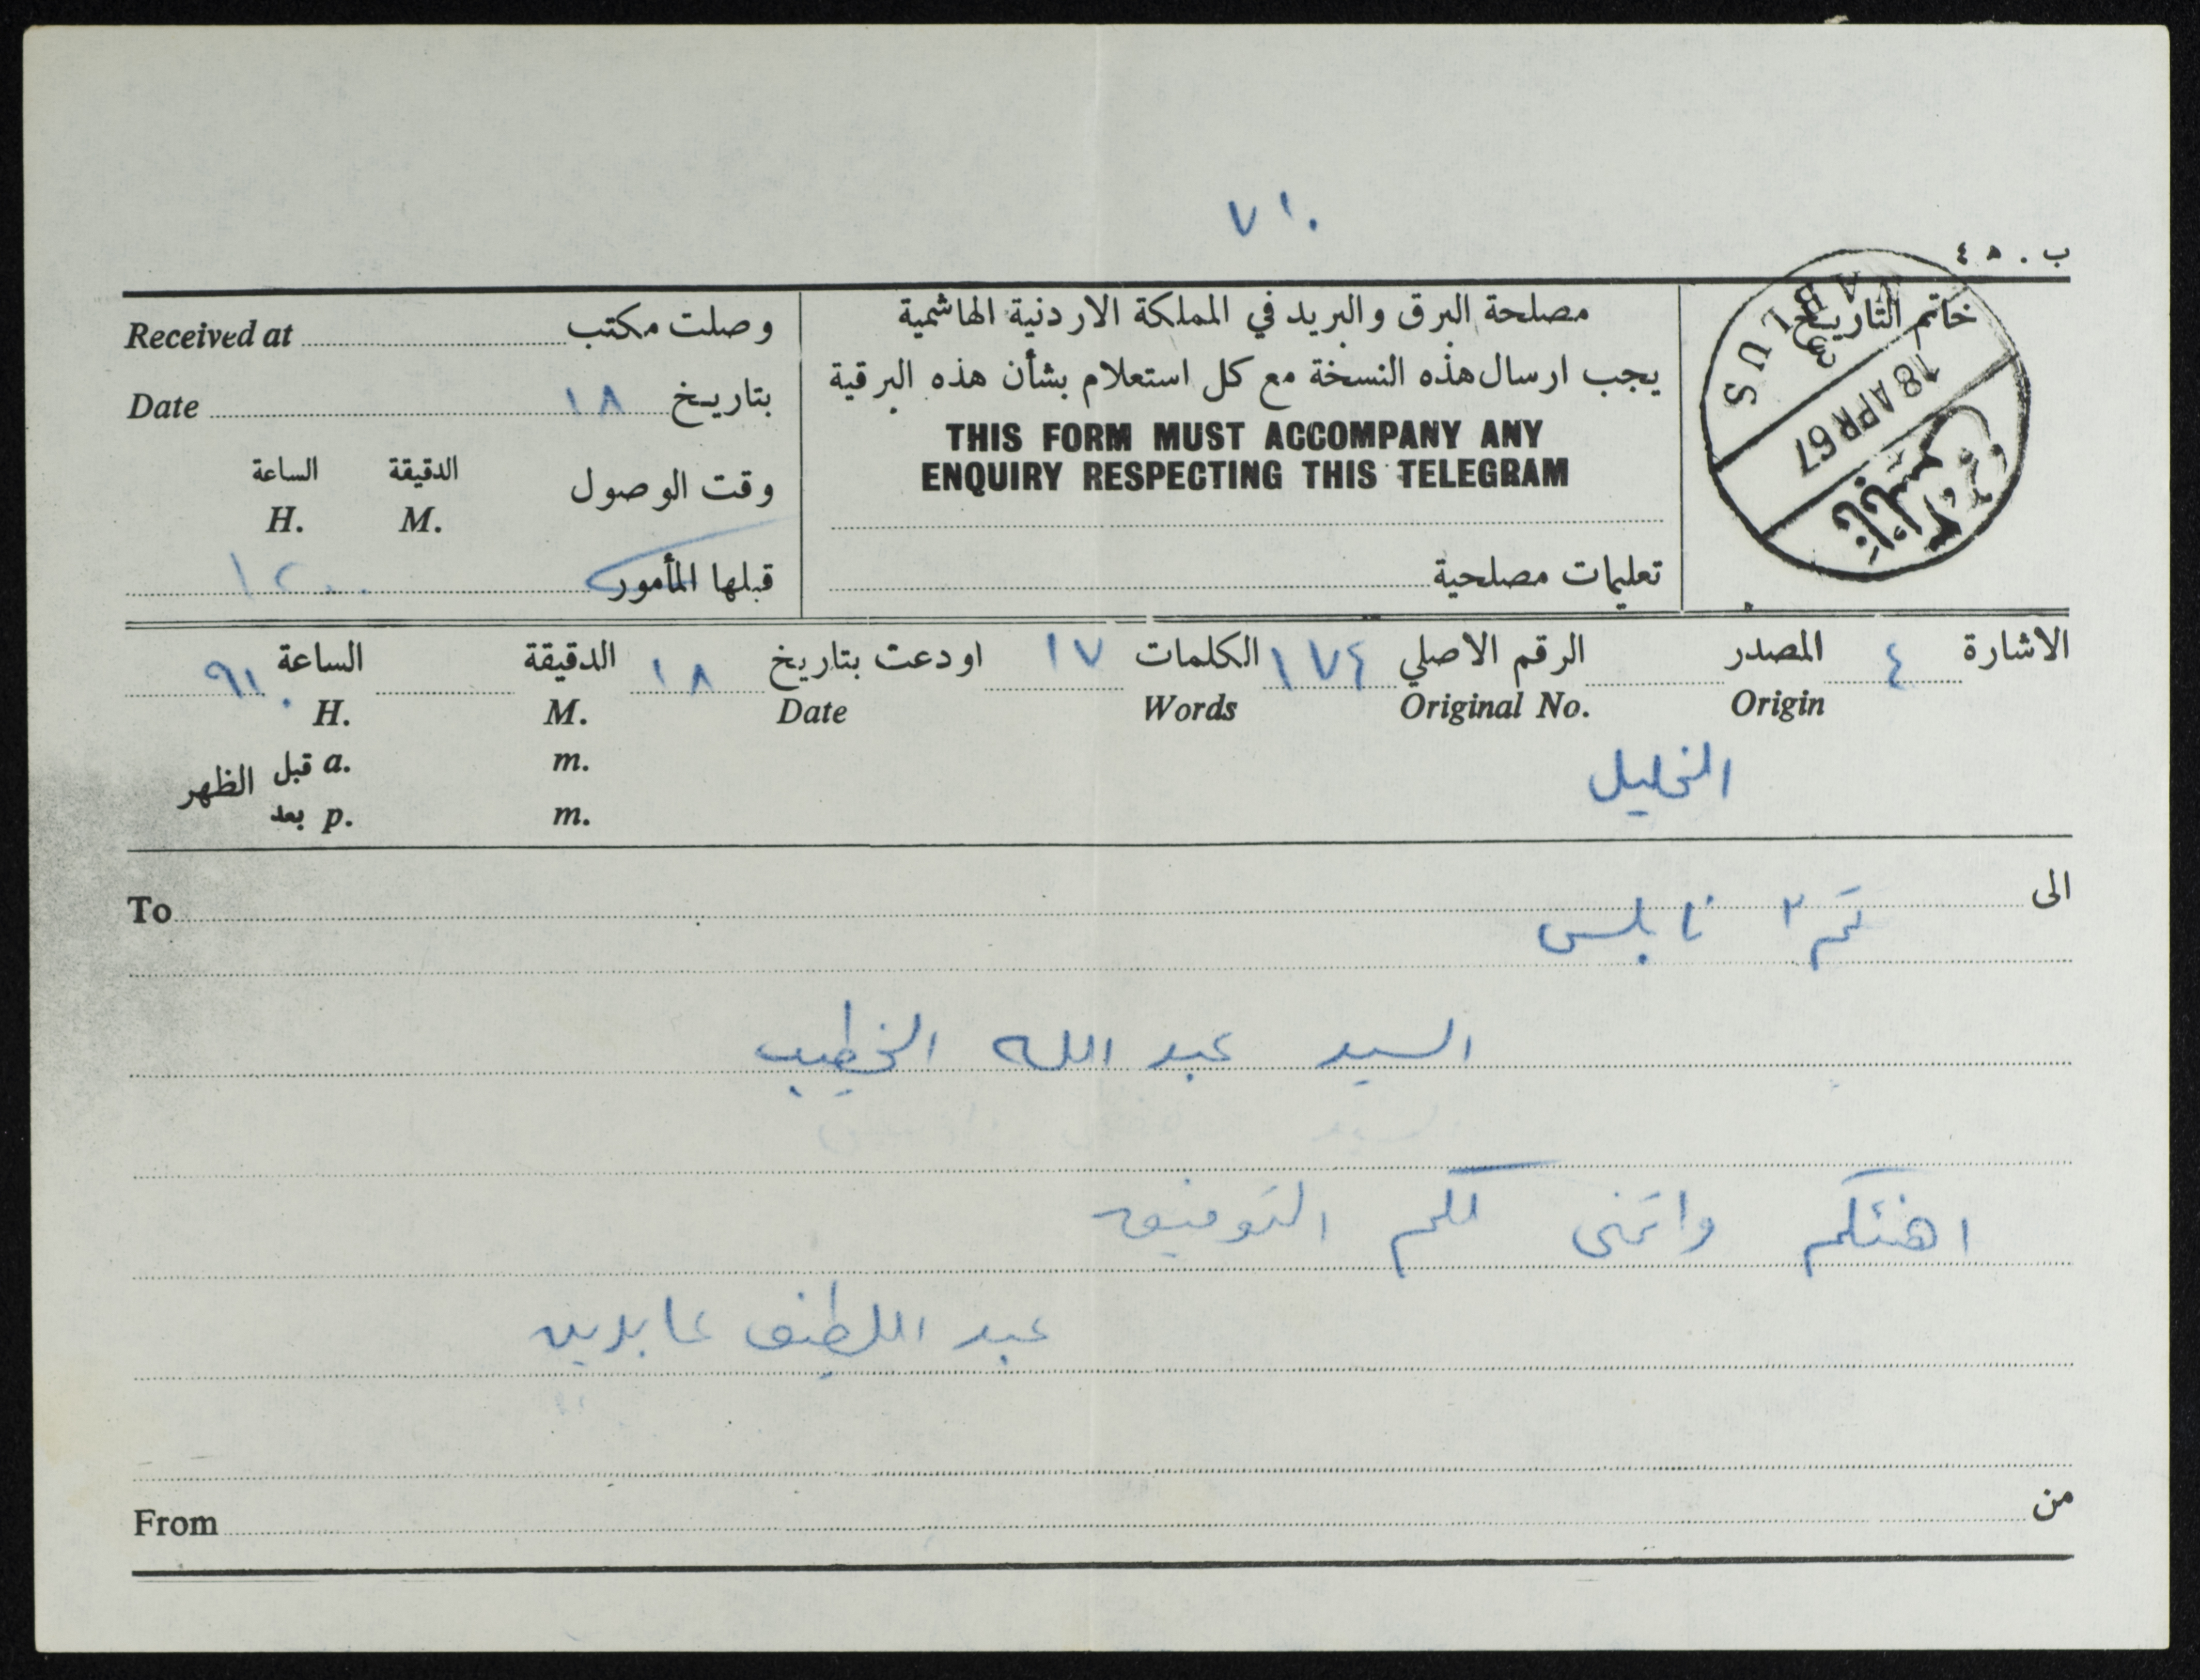 ٧١٠
ب. ٥٤
خاتم التاريخ
NABLUS
3
18 APR 67
نابلس
مصلحة البرق والبريد في المملكة الاردنية الهاشمية
يجب ارسال هذه النسخة مع كل استعلام بشأن هذه البرقية
THIS FORM MUST ACCOMPANY ANY
ENQUIRY RESPECTING THIS TELEGRAM
تعليمات مصلحية
وصلت مكتب Received at
بتاريخ ١٨ Date
وقت الوصول الدقيقة الساعة
M. H.
قبلها المأمور ١٢٠٠
الاشارة ٤ المصدر الرقم الاصلي ١٧٤ الكلمات ١٧ اودعت بتاريخ ١٨ الدقيقة الساعة ٩١٠
Origin Original No. Words Date M. H.
الخليل
قبل a. m.
الظهر
بعد p. m.
الى To
٢ نابلس
السيد عبد الله الخطيب
اهنئكم واتمنى لكم التوفيق
عبد اللطيف عابدين
من From